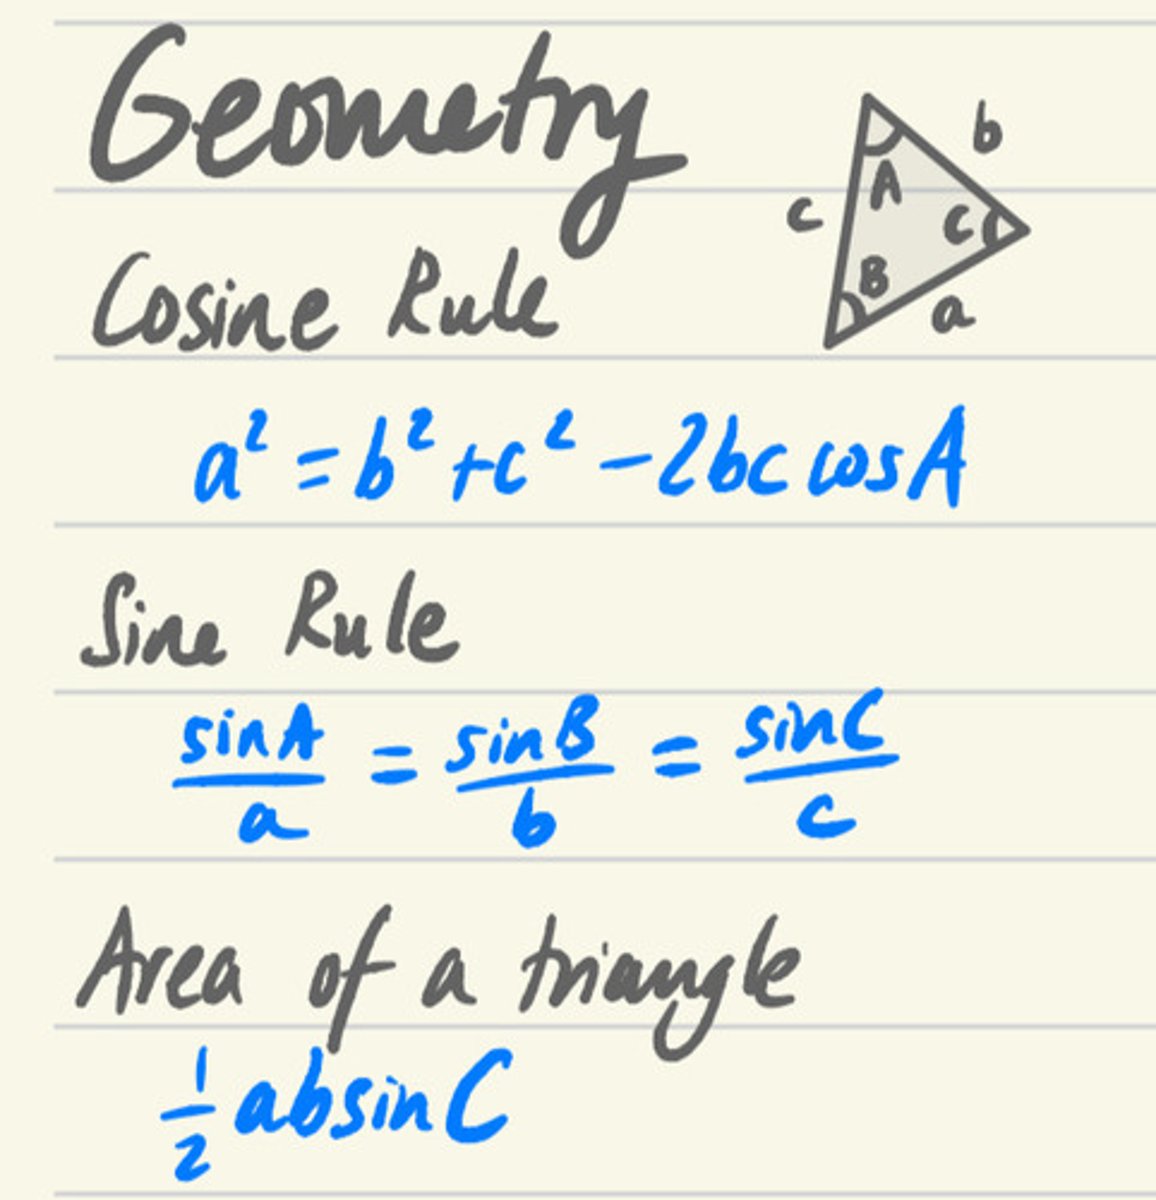 Geometry
b
A
c
C
B
a
Cosine Rule
a² = b² + c² - 2bc cos A
Sine Rule
sin A / a = sin B / b = sin C / c
Area of a triangle
1/2 ab sin C